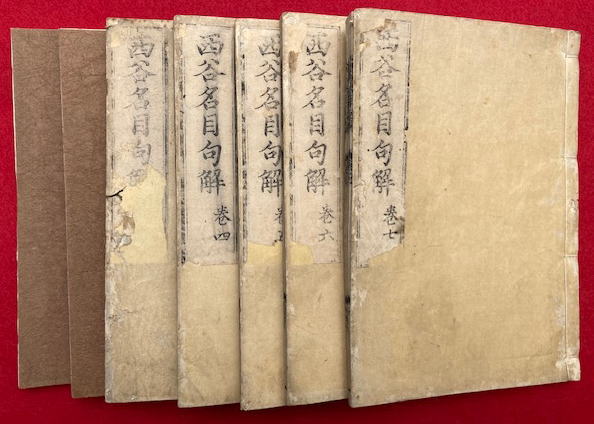 西谷名目句解
卷七
西谷名目句解
卷六
西谷名目句解
卷
西谷名目句解
卷四
西谷名目句